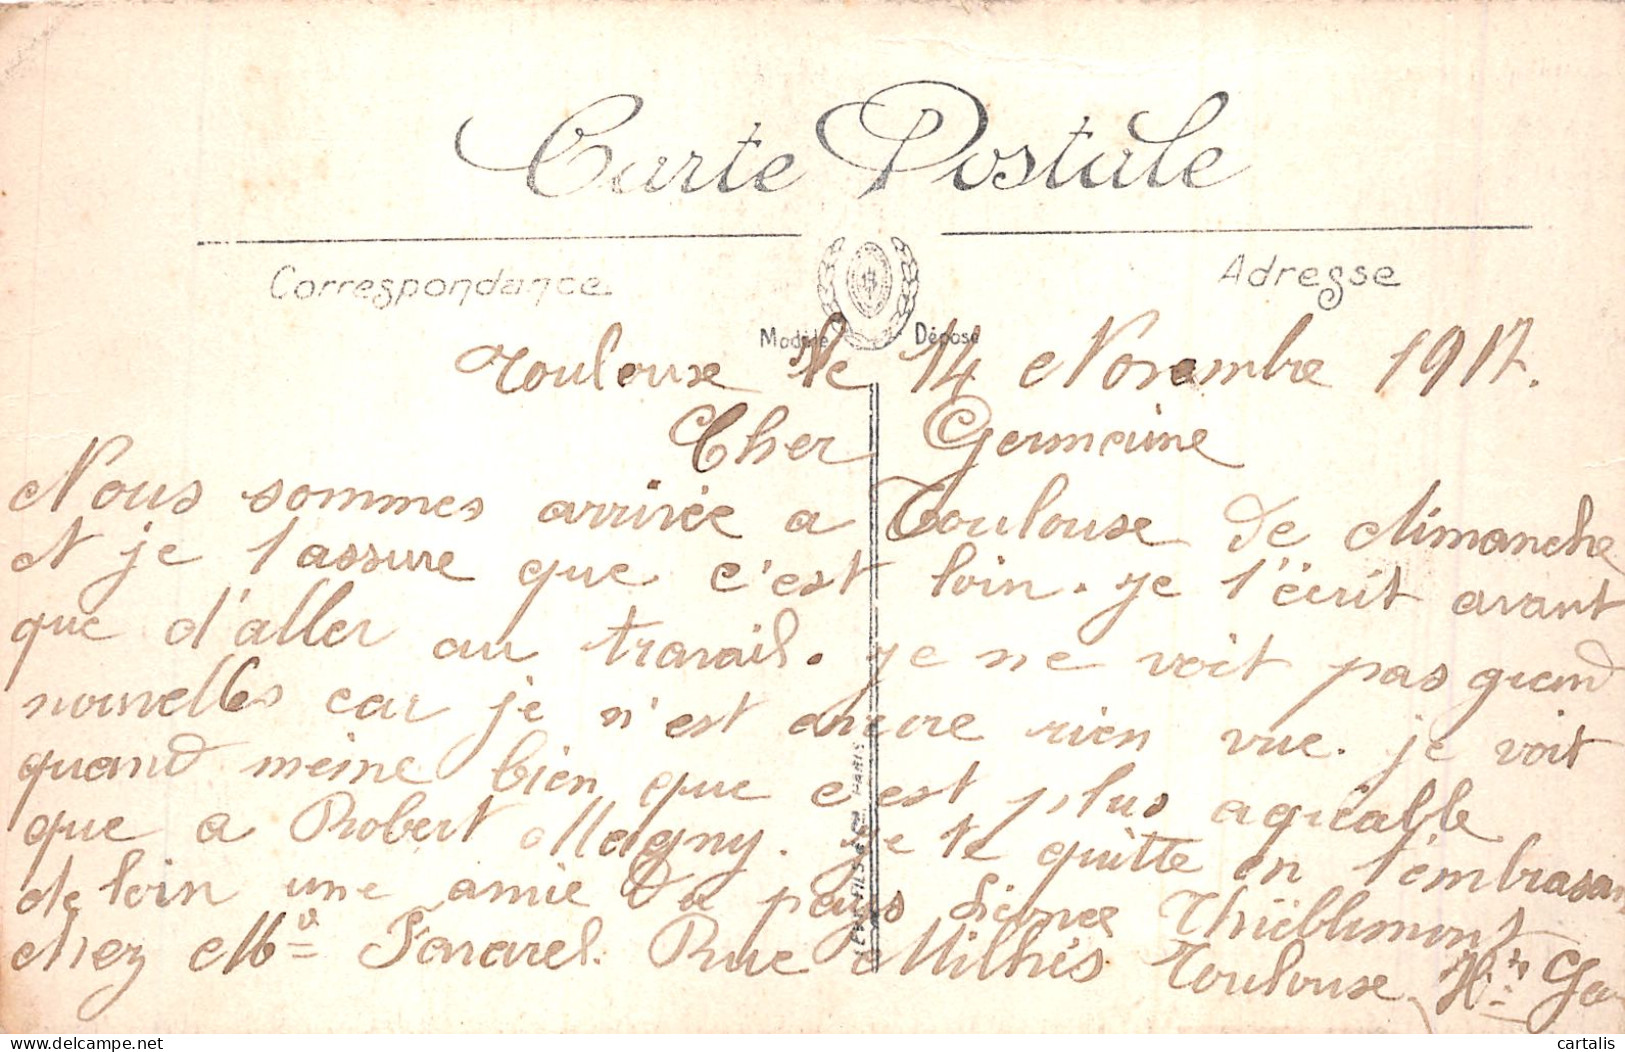 Carte Postale
Correspondance
Adresse
Modèle Déposé
Toulouse le 14 Novembre 1917.
Cher Germaine
Nous sommes arrivée a Toulouse de dimanche
et je t'assure que c'est loin. je t'écrit avant
que d'aller au travail. je ne voit pas grand
nouvelles car je n'est encore rien vue. je voit
quand même bien que c'est plus agréable
que a Robert Magny. je te quitte en t'embrasant
de loin une amie du pays Thiéblemont
chez Mme Rue Milhés Toulouse Hte Ga
FILS PARIS
cartalis